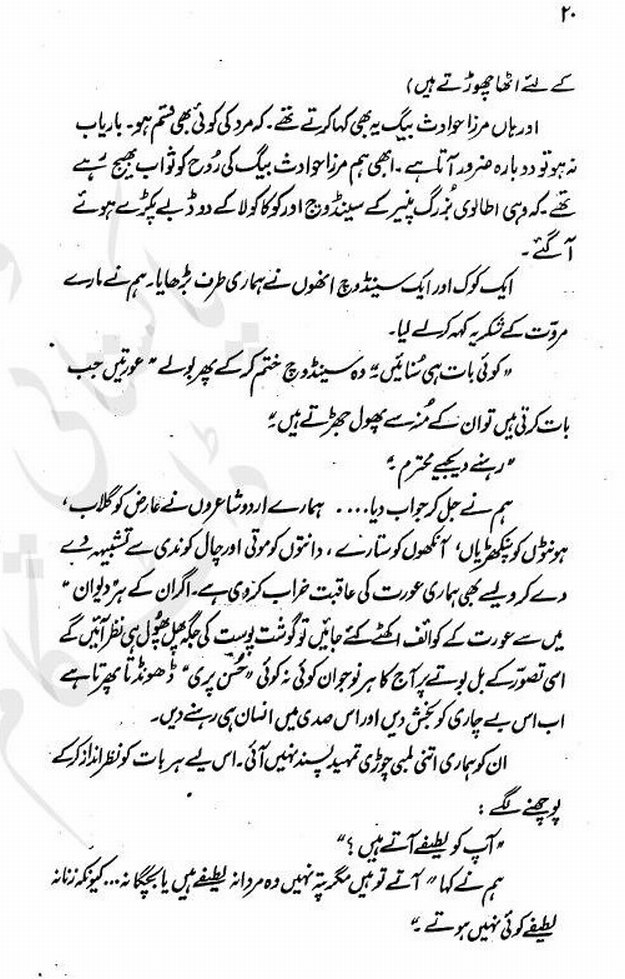 ۲۰
کے لئے اٹھا چھوڑتے ہیں)
اور ہاں مرزا حوادث بیگ یہ بھی کہا کرتے تھے۔ کہ مرد کی کوئی بھی قسم ہو۔ باریاب
نہ ہو تو دوبارہ ضرور آتا ہے۔ ابھی ہم مرزا حوادث بیگ کی رُوح کو ثواب بھیج رہے
تھے۔ کہ وہی اطالوی بزرگ پنیر کے سینڈوچ اور کوکا کولا کے دو ڈبے پکڑے ہوئے
آ گئے۔
ایک کوک اور ایک سینڈوچ انھوں نے ہماری طرف بڑھایا۔ ہم نے مارے
مروّت کے شکریہ کہہ کر لے لیا۔
"کوئی بات ہی سُنائیں۔" وہ سینڈوچ ختم کر کے پھر بولے "عورتیں جب
بات کرتی ہیں تو ان کے مُنہ سے پھول جھڑتے ہیں۔"
"رہنے دیجیے محترم۔"
ہم نے جل کر جواب دیا.... ہمارے اردو شاعروں نے عارض کو گلاب،
ہونٹوں کو پنکھڑیاں، آنکھوں کو ستارے، دانتوں کو موتی اور چال کو ندی سے تشبیہہ دے
دے کر ویسے بھی ہماری عورت کی عاقبت خراب کر دی ہے۔ اگر ان کے ہر "دیوان"
میں سے عورت کے کوائف اکٹھے کئے جائیں تو گوشت پوست کی جگہ پھل پھُول ہی نظر آئیں گے
اسی تصوّر کے بل بوتے پر آج کا ہر نوجوان کوئی نہ کوئی "حُسن پری" ڈھونڈتا پھرتا ہے
اب اس بے چاری کو بخش دیں اور اس صدی میں انسان ہی رہنے دیں۔
ان کو ہماری اتنی لمبی چوڑی تمہید پسند نہیں آئی۔ اس لیے ہر بات کو نظر انداز کر کے
پوچھنے لگے:
"آپ کو لطیفے آتے ہیں؟"
ہم نے کہا "آتے تو ہیں مگر پتہ نہیں وہ مردانہ لطیفے ہیں یا بچگانہ... کیونکہ زنانہ
لطیفے کوئی نہیں ہوتے۔"